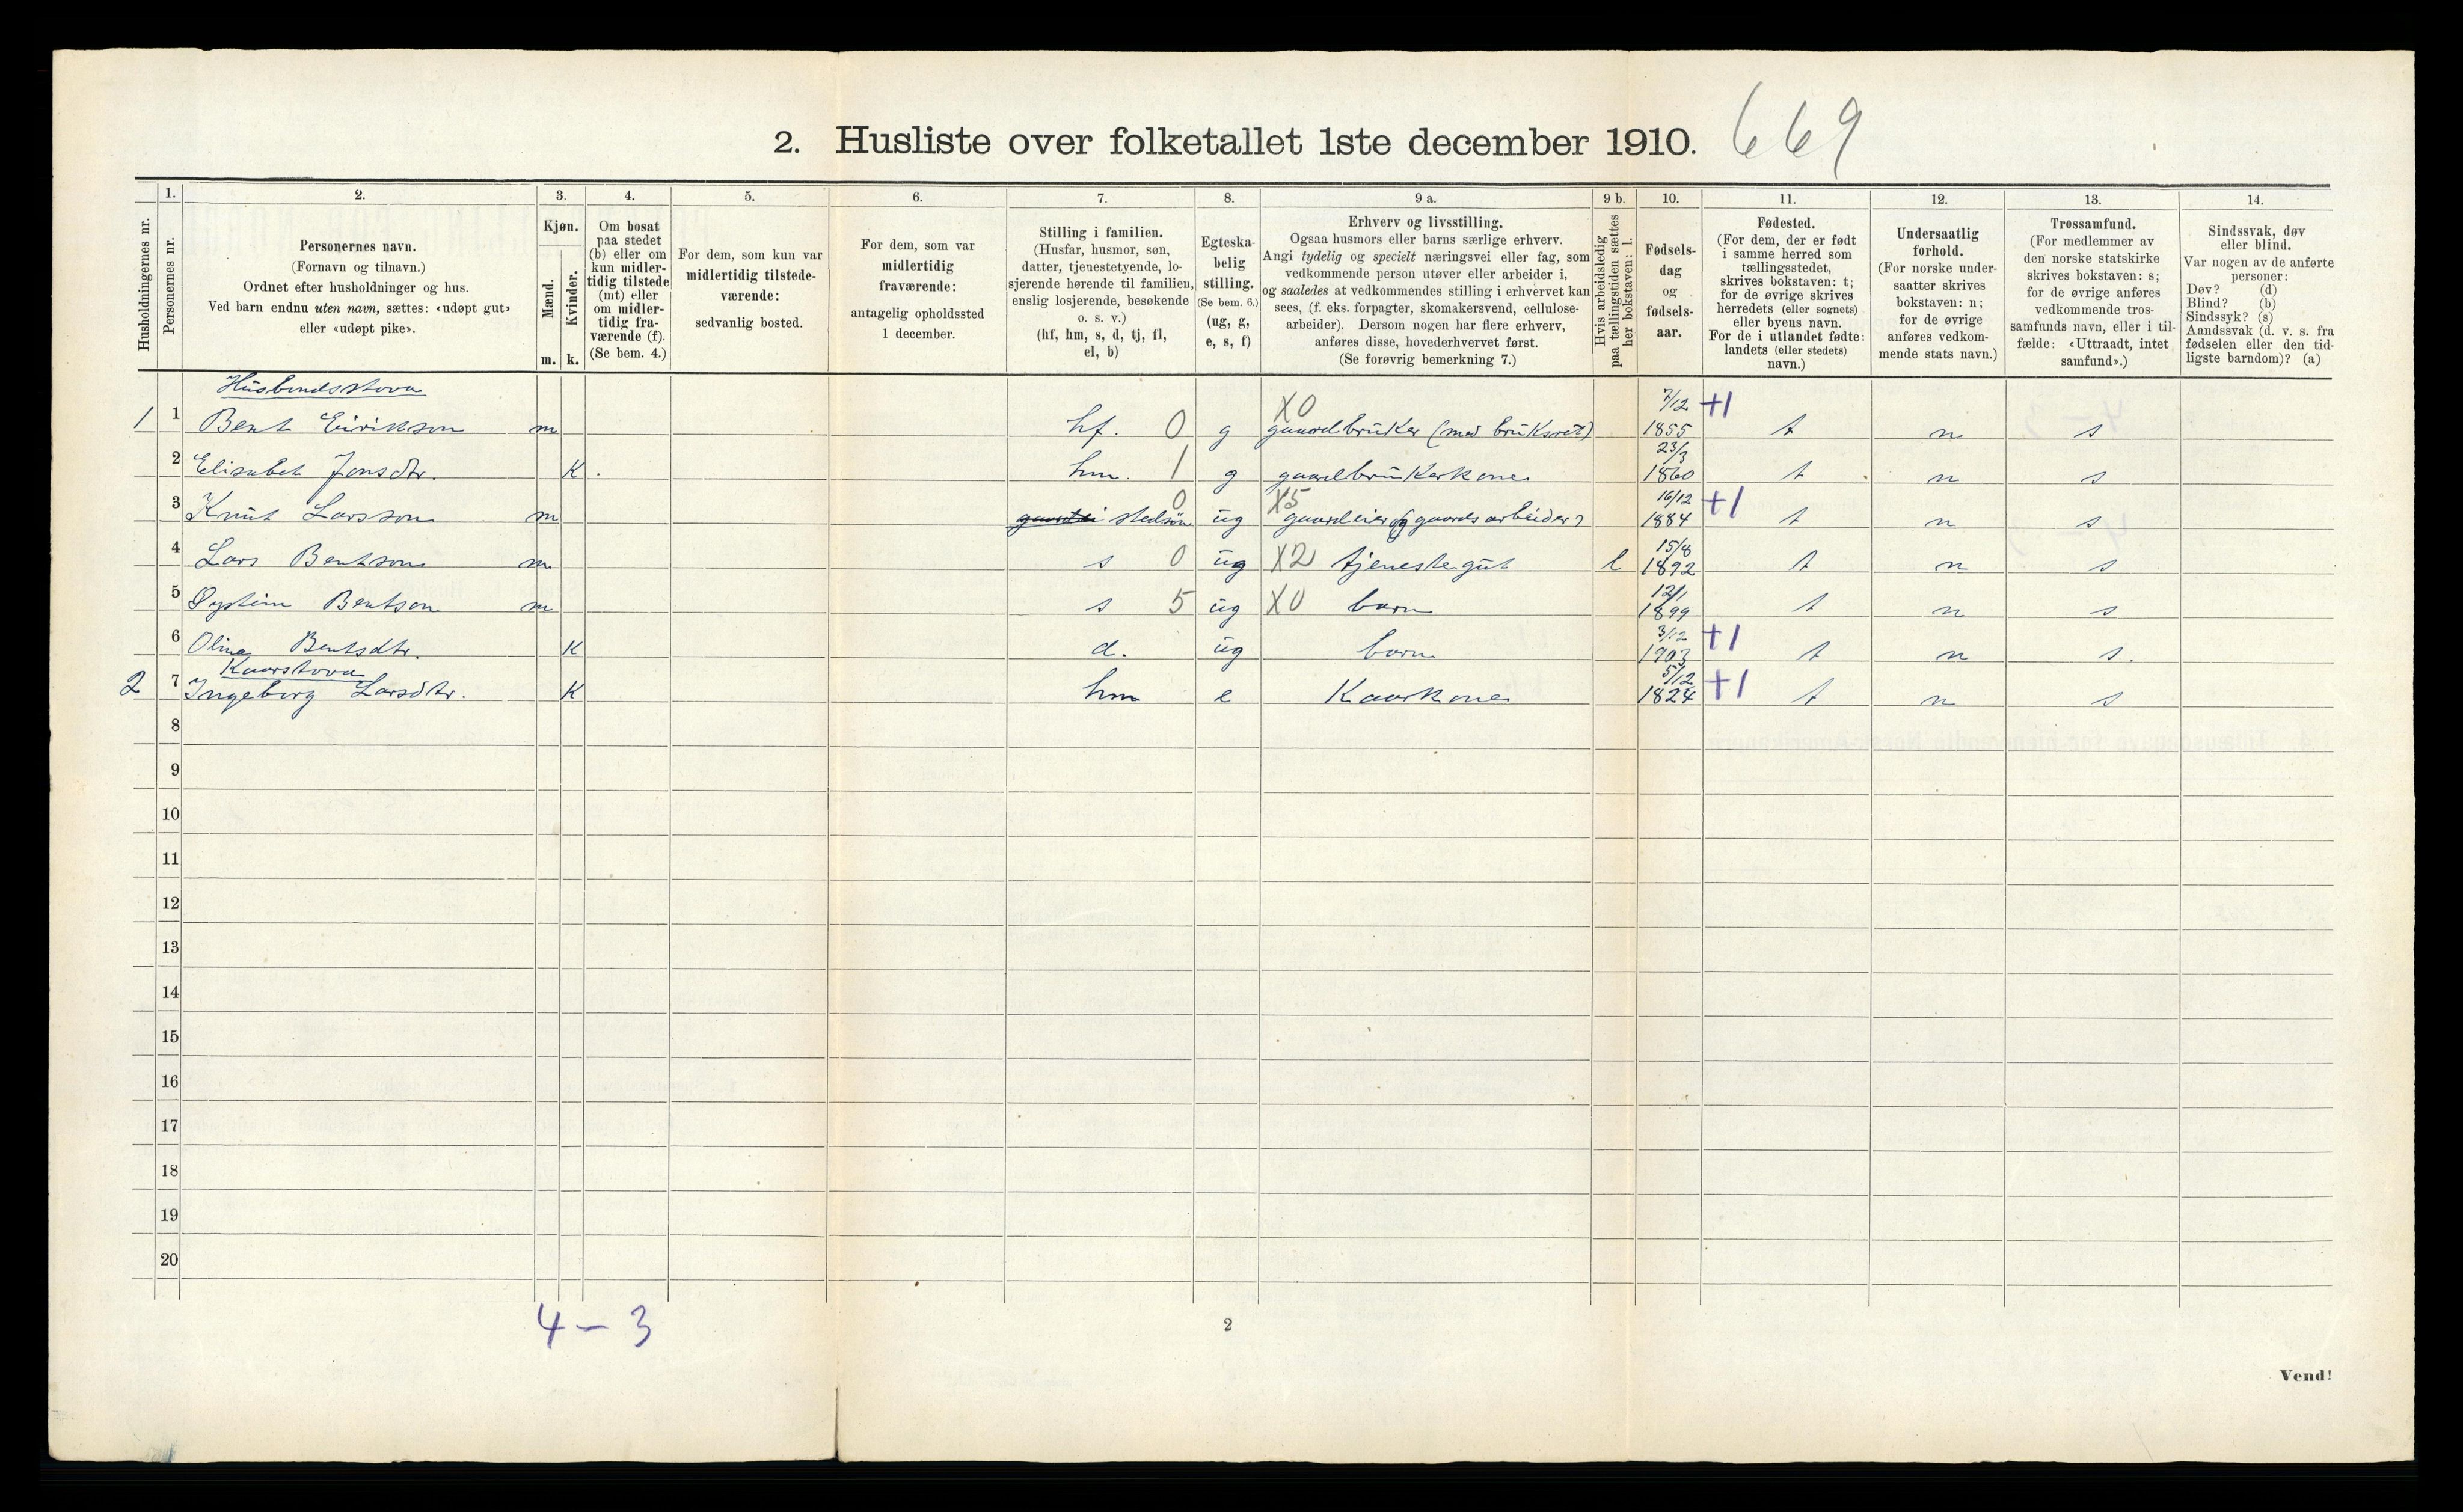 2. Husliste over folketallet 1ste december 1910. 669
Husholdningernes nr.
1.
Personernes nr.
2.
Personernes navn.
(Fornavn og tilnavn.)
Ordnet efter husholdninger og hus.
Ved barn endnu uten navn, sættes: «udøpt gut»
eller «udøpt pike».
3.
Kjøn.
Mænd.
m.
Kvinder.
k.
4.
Om bosat
paa stedet
(b) eller om
kun midler-
tidig tilstede
(mt) eller
om midler-
tidig fra-
værende (f).
(Se bem. 4.)
5.
For dem, som kun var
midlertidig tilstede-
værende:
sedvanlig bosted.
6.
For dem, som var
midlertidig
fraværende:
antagelig opholdssted
1 december.
7.
Stilling i familien.
(Husfar, husmor, søn,
datter, tjenestetyende, lo-
sjerende hørende til familien,
enslig losjerende, besøkende
o. s. v.)
(hf, hm, s, d, tj, fl,
el, b)
8.
Egteska-
belig
stilling.
(Se bem. 6.)
(ug, g,
e, s, f)
9 a.
Erhverv og livsstilling.
Ogsaa husmors eller barns særlige erhverv.
Angi tydelig og specielt næringsvei eller fag, som
vedkommende person utøver eller arbeider i,
og saaledes at vedkommendes stilling i erhvervet kan
sees, (f. eks. forpagter, skomakersvend, cellulose-
arbeider). Dersom nogen har flere erhverv,
anføres disse, hovederhvervet først.
(Se forøvrig bemerkning 7.)
9 b.
Hvis arbeidsledig
paa tællingstiden sættes
her bokstaven: l.
10.
Fødsels-
dag
og
fødsels-
aar.
11.
Fødested.
(For dem, der er født
i samme herred som
tællingsstedet,
skrives bokstaven: t;
for de øvrige skrives
herredets (eller sognets)
eller byens navn.
For de i utlandet fødte:
landets (eller stedets)
navn.)
12.
Undersaatlig
forhold.
(For norske under-
saatter skrives
bokstaven: n;
for de øvrige
anføres vedkom-
mende stats navn.)
13.
Trossamfund.
(For medlemmer av
den norske statskirke
skrives bokstaven: s;
for de øvrige anføres
vedkommende tros-
samfunds navn, eller i til-
fælde: «Uttraadt, intet
samfund».)
14.
Sindssvak, døv
eller blind.
Var nogen av de anførte
personer:
Døv? (d)
Blind? (b)
Sindssyk? (s)
Aandssvak (d. v. s. fra
fødselen eller den tid-
ligste barndom)? (a)
Husbondsstova
1 1 Bent Eirikson m hf. 0 g X0 gaardbruker (med bruksret) 7/12 1855 +1 t n s
2 Elisabet Jonsdtr. K hm. 1 g gaardbrukerkone 23/3 1860 t n s
3 Knut Larsson m stedsøn 0 ug X5 gaardeier og gaardsarbeider 16/12 1884 +1 t n s
4 Lars Bentson m s 0 ug X2 tjenestegut l 15/8 1892 t n s
5 Øystein Bentson m s 5 ug X0 barn 12/1 1899 t n s
6 Olina Bentsdtr. K d. ug barn 3/12 1903 +1 t n s.
Kaarstova
2 7 Ingeborg Larsdtr. K hm e Kaarkone 5/12 1824 +1 t n s
8
9
10
11
12
13
14
15
16
17
18
19
20
4 – 3
2
Vend!